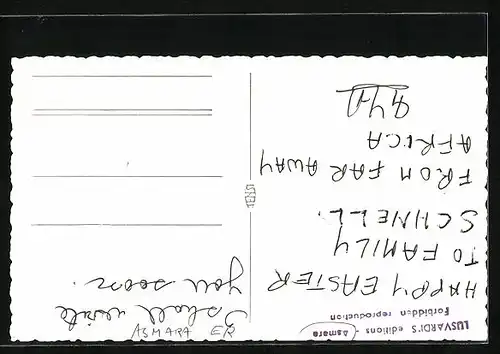 LUSVARDI'S editions - Asmara
Forbidden reproduction
HAPPY EASTER
TO FAMILY
SCHNELL.
FROM FAR AWAY
AFRICA
I shall write
you soon.
ASMARA ER